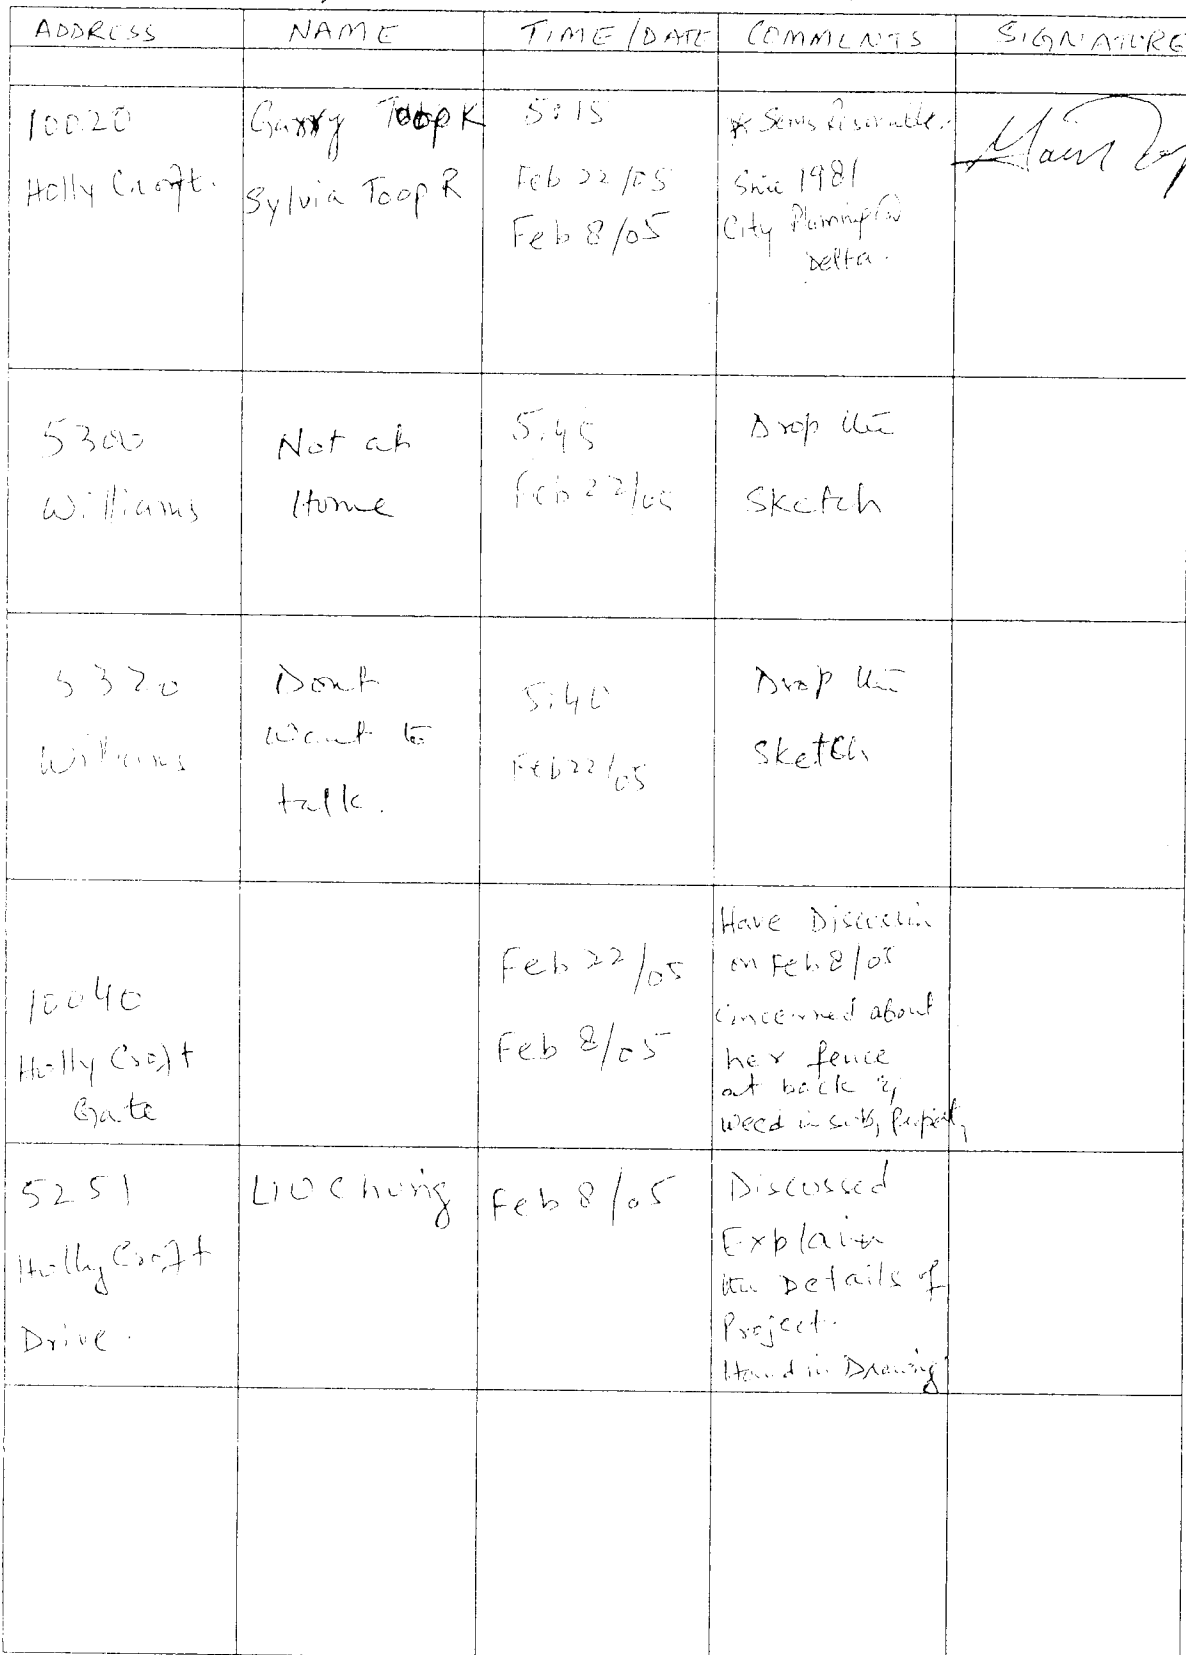 ADDRESS NAME TIME/DATE COMMENTS SIGNATURE
10020
Holly Croft.
Garry Toop K
Sylvia Toop R
5:15
Feb 22/05
Feb 8/05
* Sems
Since 1981
City Planning @
Delta.
5300
Williams
Not at
Home
5:45
Feb 22/05
Drop the
Sketch
5320
Williams
Dont
want to
talk.
5:40
Feb 22/05
Drop the
Sketch
10040
Holly Croft
Gate
Feb 22/05
Feb 8/05
Have Discussin
on Feb 8/05
Concerned about
her fence
at back &
weed in
5251
Holly Croft
Drive.
LIU Chung
Feb 8/05
Discussed
Explain
the Details of
Project.
Hand in Drawing